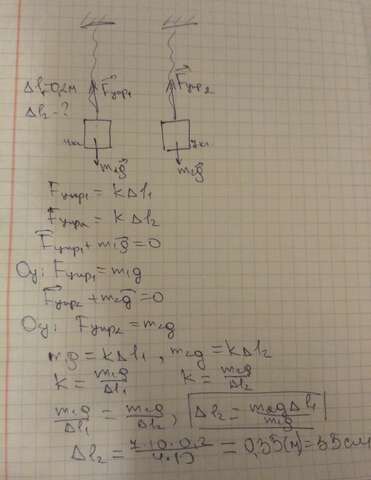 Δl₁=0,2м F⃗упр₁ F⃗упр2
Δl₂-?
4кг 7кг
m₁g⃗ m₂g⃗
Fупр₁ = kΔl₁
Fупр₂ = kΔl₂
F⃗упр₁ + m₁g⃗ = 0
Oy: Fупр₁ = m₁g
F⃗упр₂ + m₂g⃗ = 0
Oy: Fупр₂ = m₂g
m₁g = kΔl₁, m₂g = kΔl₂
k = m₁g/Δl₁ k = m₂g/Δl₂
m₁g/Δl₁ = m₂g/Δl₂, Δl₂ = m₂gΔl₁/m₁g
Δl₂ = 7·10·0,2/4·10 = 0,35(м) = 35см